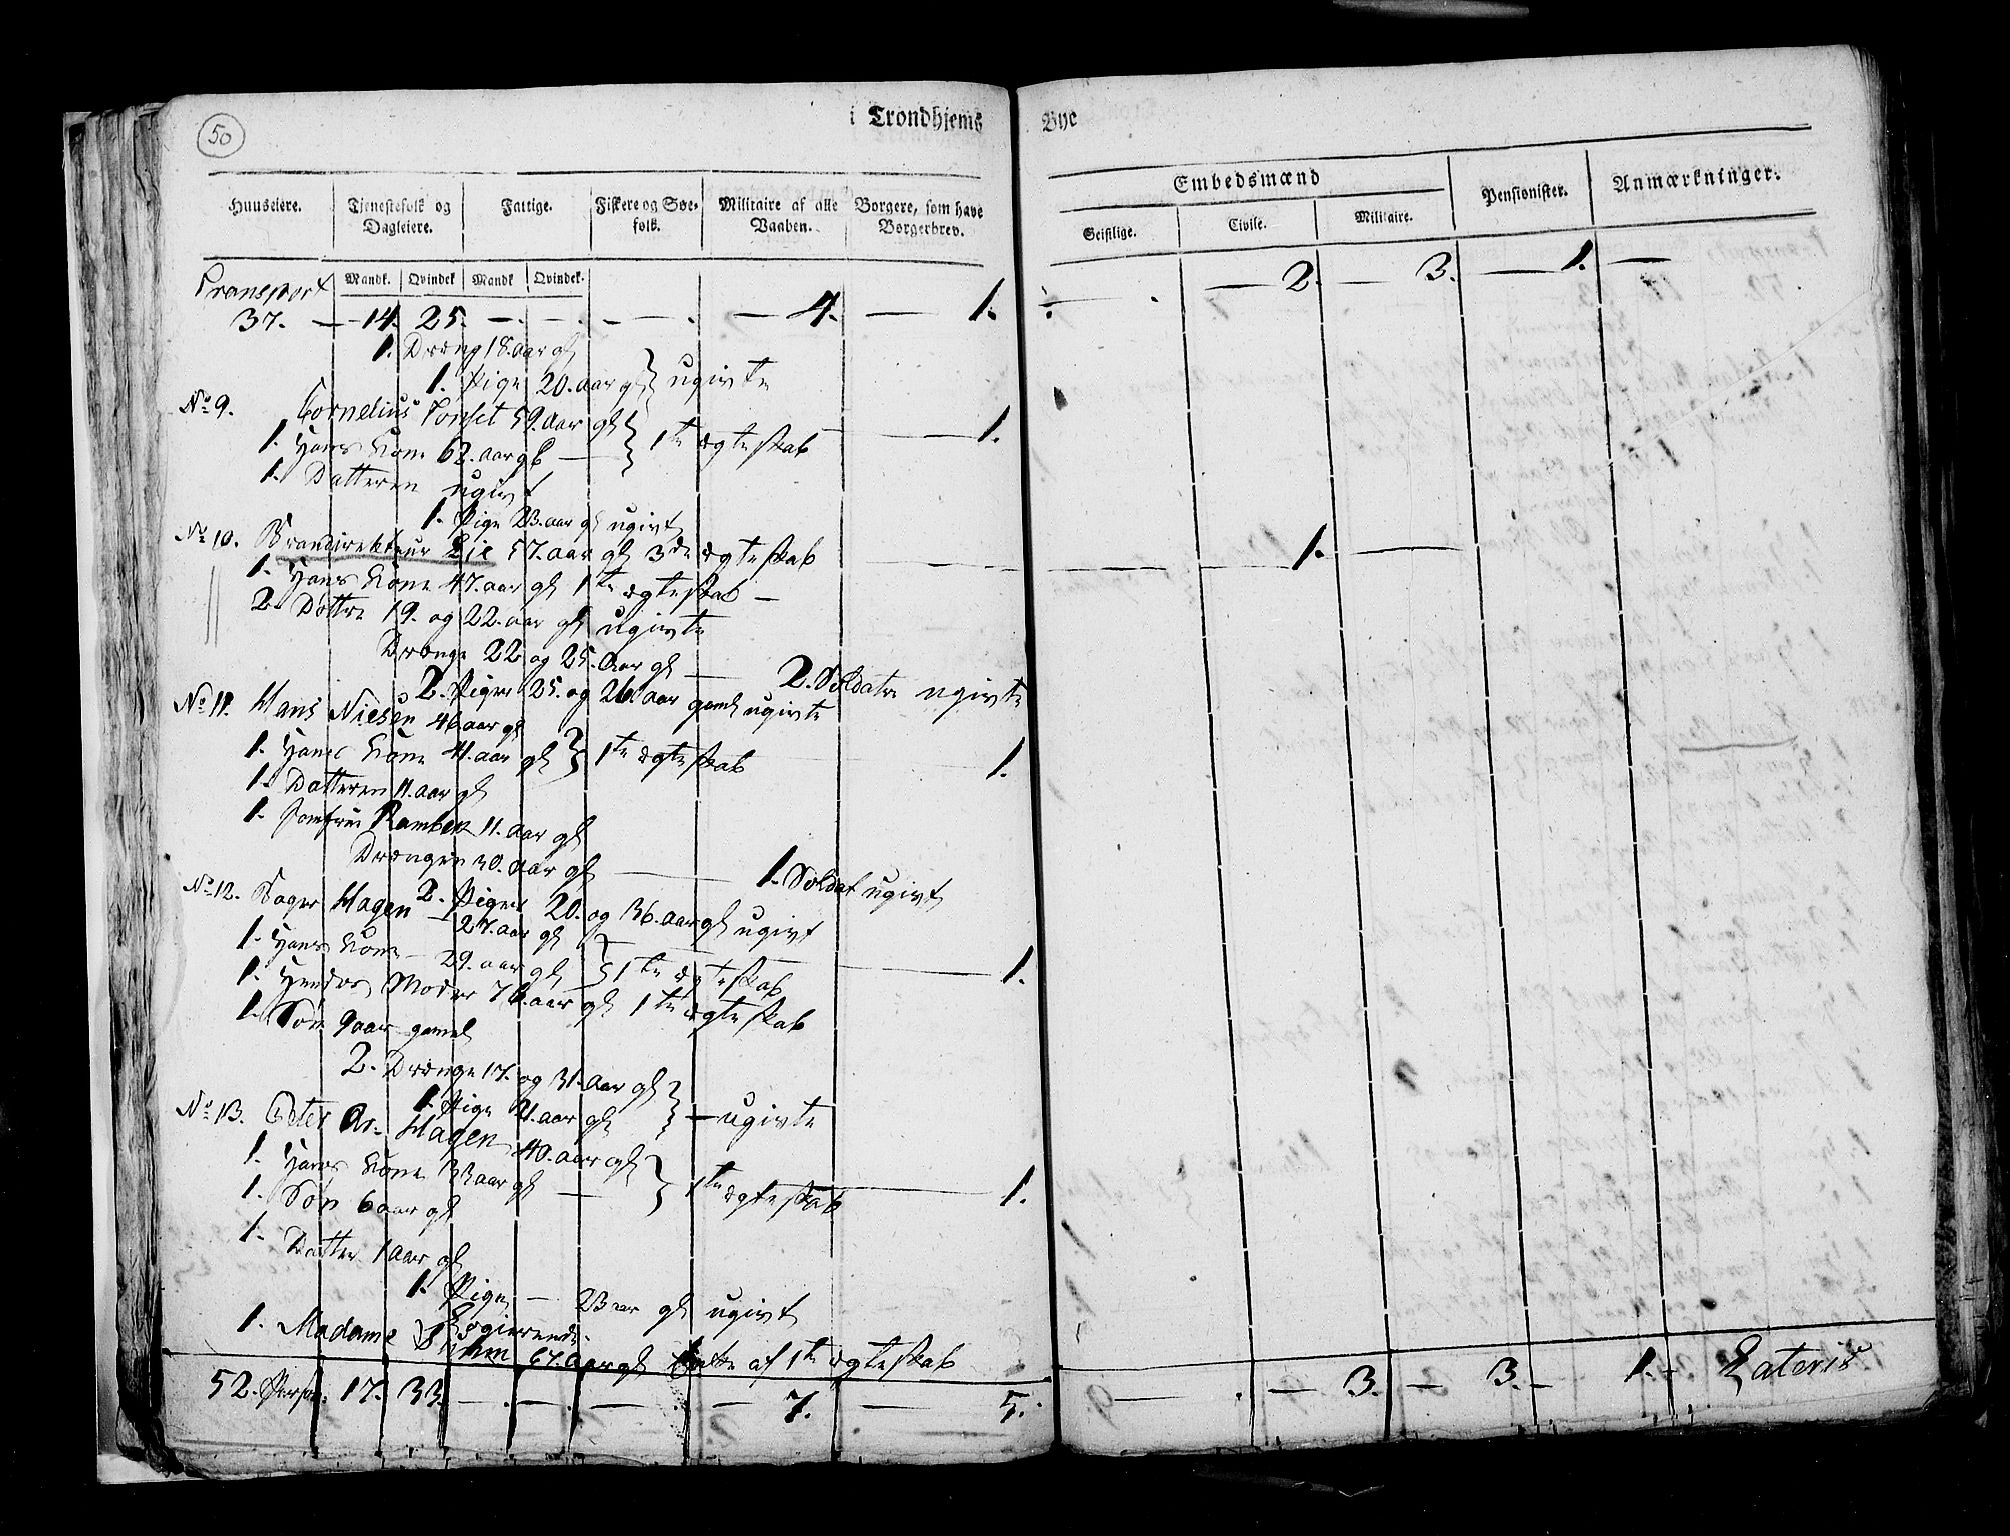 50
i Trondhjems Bye
Huuseiere. Tjenestefolk og Dagleiere. Fattige. Fiskere og Søe-folk. Militaire af alle Vaaben. Borgere, som have Borgerbrev. Embedsmænd Pensionister. Anmærkninger.
Geistlige. Civile. Militaire.
Mandk. Qvindek Mandk Qvindek.
Transport
37. — 14. 25. — . — . — . — 4. — 1. — . — 2. — 3. — 1. —
1. Dræng 18. aar gl
1. Pige 20. aar gl } ugivte
No 9. Cornelius Tonset 59. aar gl
1. Hans Kone 62. aar gl — } 1te ægteskab — 1.
1. Datteren ugivt
1. Pige 23. aar gl ugivt
No 10. Brandirekteur Lie 57. aar gl 3de ægteskab — 1. —
1. Hans Kone 47. aar gl 1te ægteskab —
2. Dottre 19. og 22. aar gl ugivte
Drænge 22 og 25. aar gl — 2. Soldater ugivte
2. Piger 25. og 26. aar gaml ugivte
No 11. Hans Niesen 46 aar gl
1. Hans Kone 41. aar gl } 1te ægteskab — 1.
1. Datteren 11. aar gl
1. Jomfrue 11. aar gl
Drængen 30. aar gl — 1. Soldat ugivt
2. Piger 20. og 36. aar gl ugivt
No 12. Bager Hagen — 27. aar gl
1. Hans Kone — 29. aar gl } 1te ægteskab — 1.
1. Hendes Moder 76. aar gl 1te ægteskab
1. Søn 9 aar gamel
2. Drænge 17. og 31. aar gl
1. Pige 21. aar gl } — ugivte
No 13. Peter Ar. Hagen 40. aar gl
1. Hans Kone 33 aar gl — } 1te ægteskab — 1.
1. Søn 6 aar gl
1. Datter 1 aar gl
1. Pige — 23 aar gl ugivt
1. Madame 67. aar gl Enke af 1te ægteskab
52. Perso. 17. 33. — . — . — . — 7. — 5. — . — 3. — 3. — 1. — Lateris